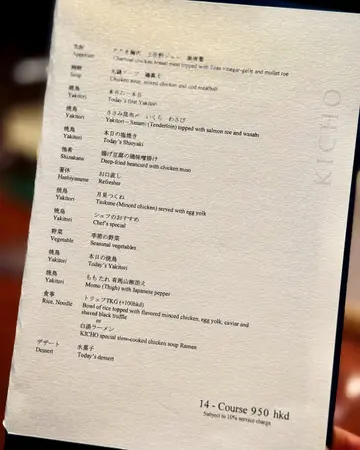 先附
Appetizer
Charcoal chicken breast meat topped with Tosa vinegar-gelée and mullet roe
Soup
Chicken soup, minced chicken and cod meatball
焼鳥 本日の一本目
Yakitori Today's first Yakitori
焼鳥 ささみ昆布〆 いくら わさび
Yakitori Yakitori – Sasami (Tenderloin) topped with salmon roe and wasabi
焼鳥 本日の塩焼き
Yakitori Today's Shioyaki
強肴 揚げ豆腐の鶏味噌掛け
Shiizakana Deep-fried beancurd with chicken miso
箸休 お口直し
Hashiyasume Refresher
焼鳥 月見つくね
Yakitori Tsukune (Minced chicken) served with egg yolk
焼鳥 シェフのおすすめ
Yakitori Chef's special
野菜 季節の野菜
Vegetable Seasonal vegetables
焼鳥 本日の焼鳥
Yakitori Today's Yakitori
焼鳥 もも たれ 有馬山椒添え
Yakitori Momo (Thigh) with Japanese pepper
食事 トリュフTKG (+100hkd)
Rice, Noodle Bowl of rice topped with flavored minced chicken, egg yolk, caviar and
shaved black truffle
or
白湯ラーメン
KICHO special slow-cooked chicken soup Ramen
デザート 水菓子
Dessert Today's dessert
14 - Course 950 hkd
Subject to 10% service charge
KICHO